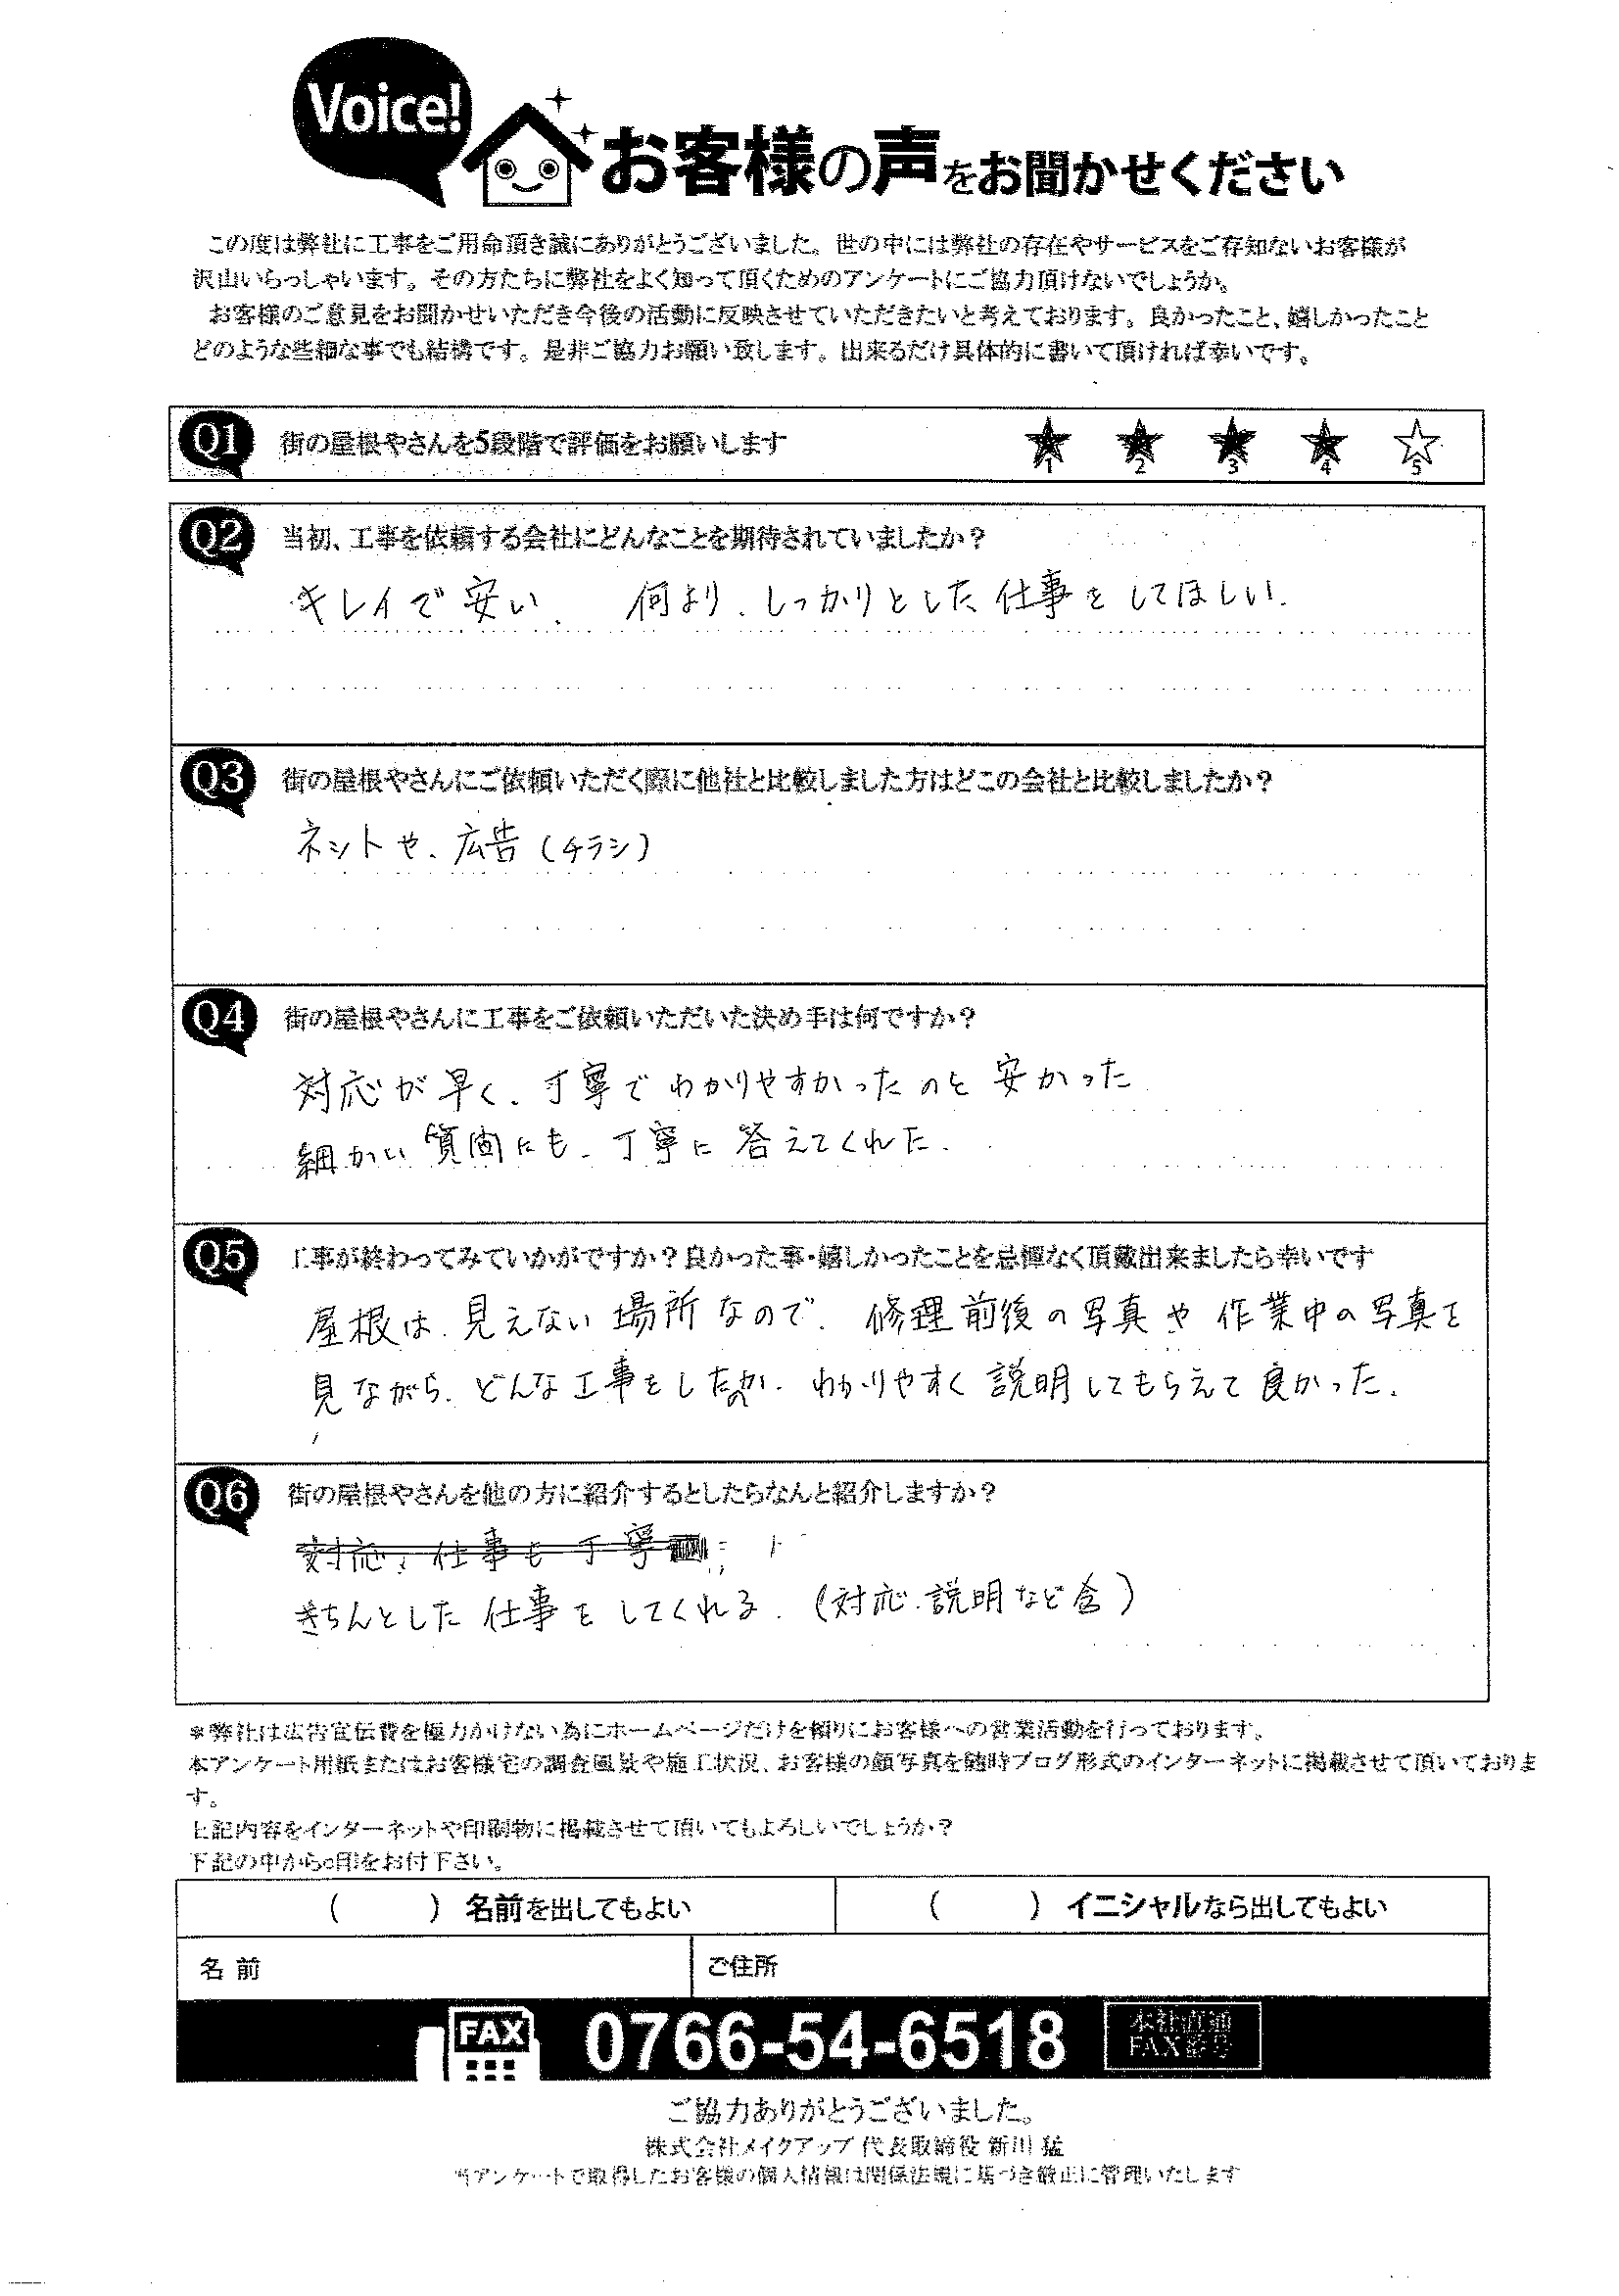 Voice!
お客様の声をお聞かせください
この度は弊社に工事をご用命頂き誠にありがとうございました。世の中には弊社の存在やサービスをご存知ないお客様が
沢山いらっしゃいます。その方たちに弊社をよく知って頂くためのアンケートにご協力頂けないでしょうか。
お客様のご意見をお聞かせいただき今後の活動に反映させていただきたいと考えております。良かったこと、嬉しかったこと
どのような些細な事でも結構です。是非ご協力お願い致します。出来るだけ具体的に書いて頂ければ幸いです。
Q1 街の屋根やさんを5段階で評価をお願いします ★ ★ ★ ★ ☆
1 2 3 4 5
Q2 当初、工事を依頼する会社にどんなことを期待されていましたか？
キレイで安い、 何より、しっかりとした仕事をしてほしい.
Q3 街の屋根やさんにご依頼いただく際に他社と比較しました方はどこの会社と比較しましたか？
ネットや、広告（チラシ）
Q4 街の屋根やさんに工事をご依頼いただいた決め手は何ですか？
対応が早く、丁寧でわかりやすかったのと安かった
細かい質問にも、丁寧に答えてくれた.
Q5 工事が終わってみていかがですか？良かった事・嬉しかったことを忌憚なく頂戴出来ましたら幸いです
屋根は、見えない場所なので、修理前後の写真や作業中の写真を
見ながら、どんな工事をしたのか、わかりやすく説明してもらえて良かった.
Q6 街の屋根やさんを他の方に紹介するとしたらなんと紹介しますか？
対応、仕事も丁寧
きちんとした仕事をしてくれる.（対応.説明など含）
＊弊社は広告宣伝費を極力かけない為にホームページだけを頼りにお客様への営業活動を行っております。
本アンケート用紙またはお客様宅の調査風景や施工状況、お客様の顔写真を随時ブログ形式のインターネットに掲載させて頂いておりま
す。
上記内容をインターネットや印刷物に掲載させて頂いてもよろしいでしょうか？
下記の中から○印をお付下さい。
（　　　）名前を出してもよい （　　　）イニシャルなら出してもよい
名 前 ご住所
FAX 0766-54-6518 本社直通
FAX番号
ご協力ありがとうございました。
株式会社メイクアップ 代表取締役 新川 猛
当アンケートで取得したお客様の個人情報は関係法規に基づき厳正に管理いたします